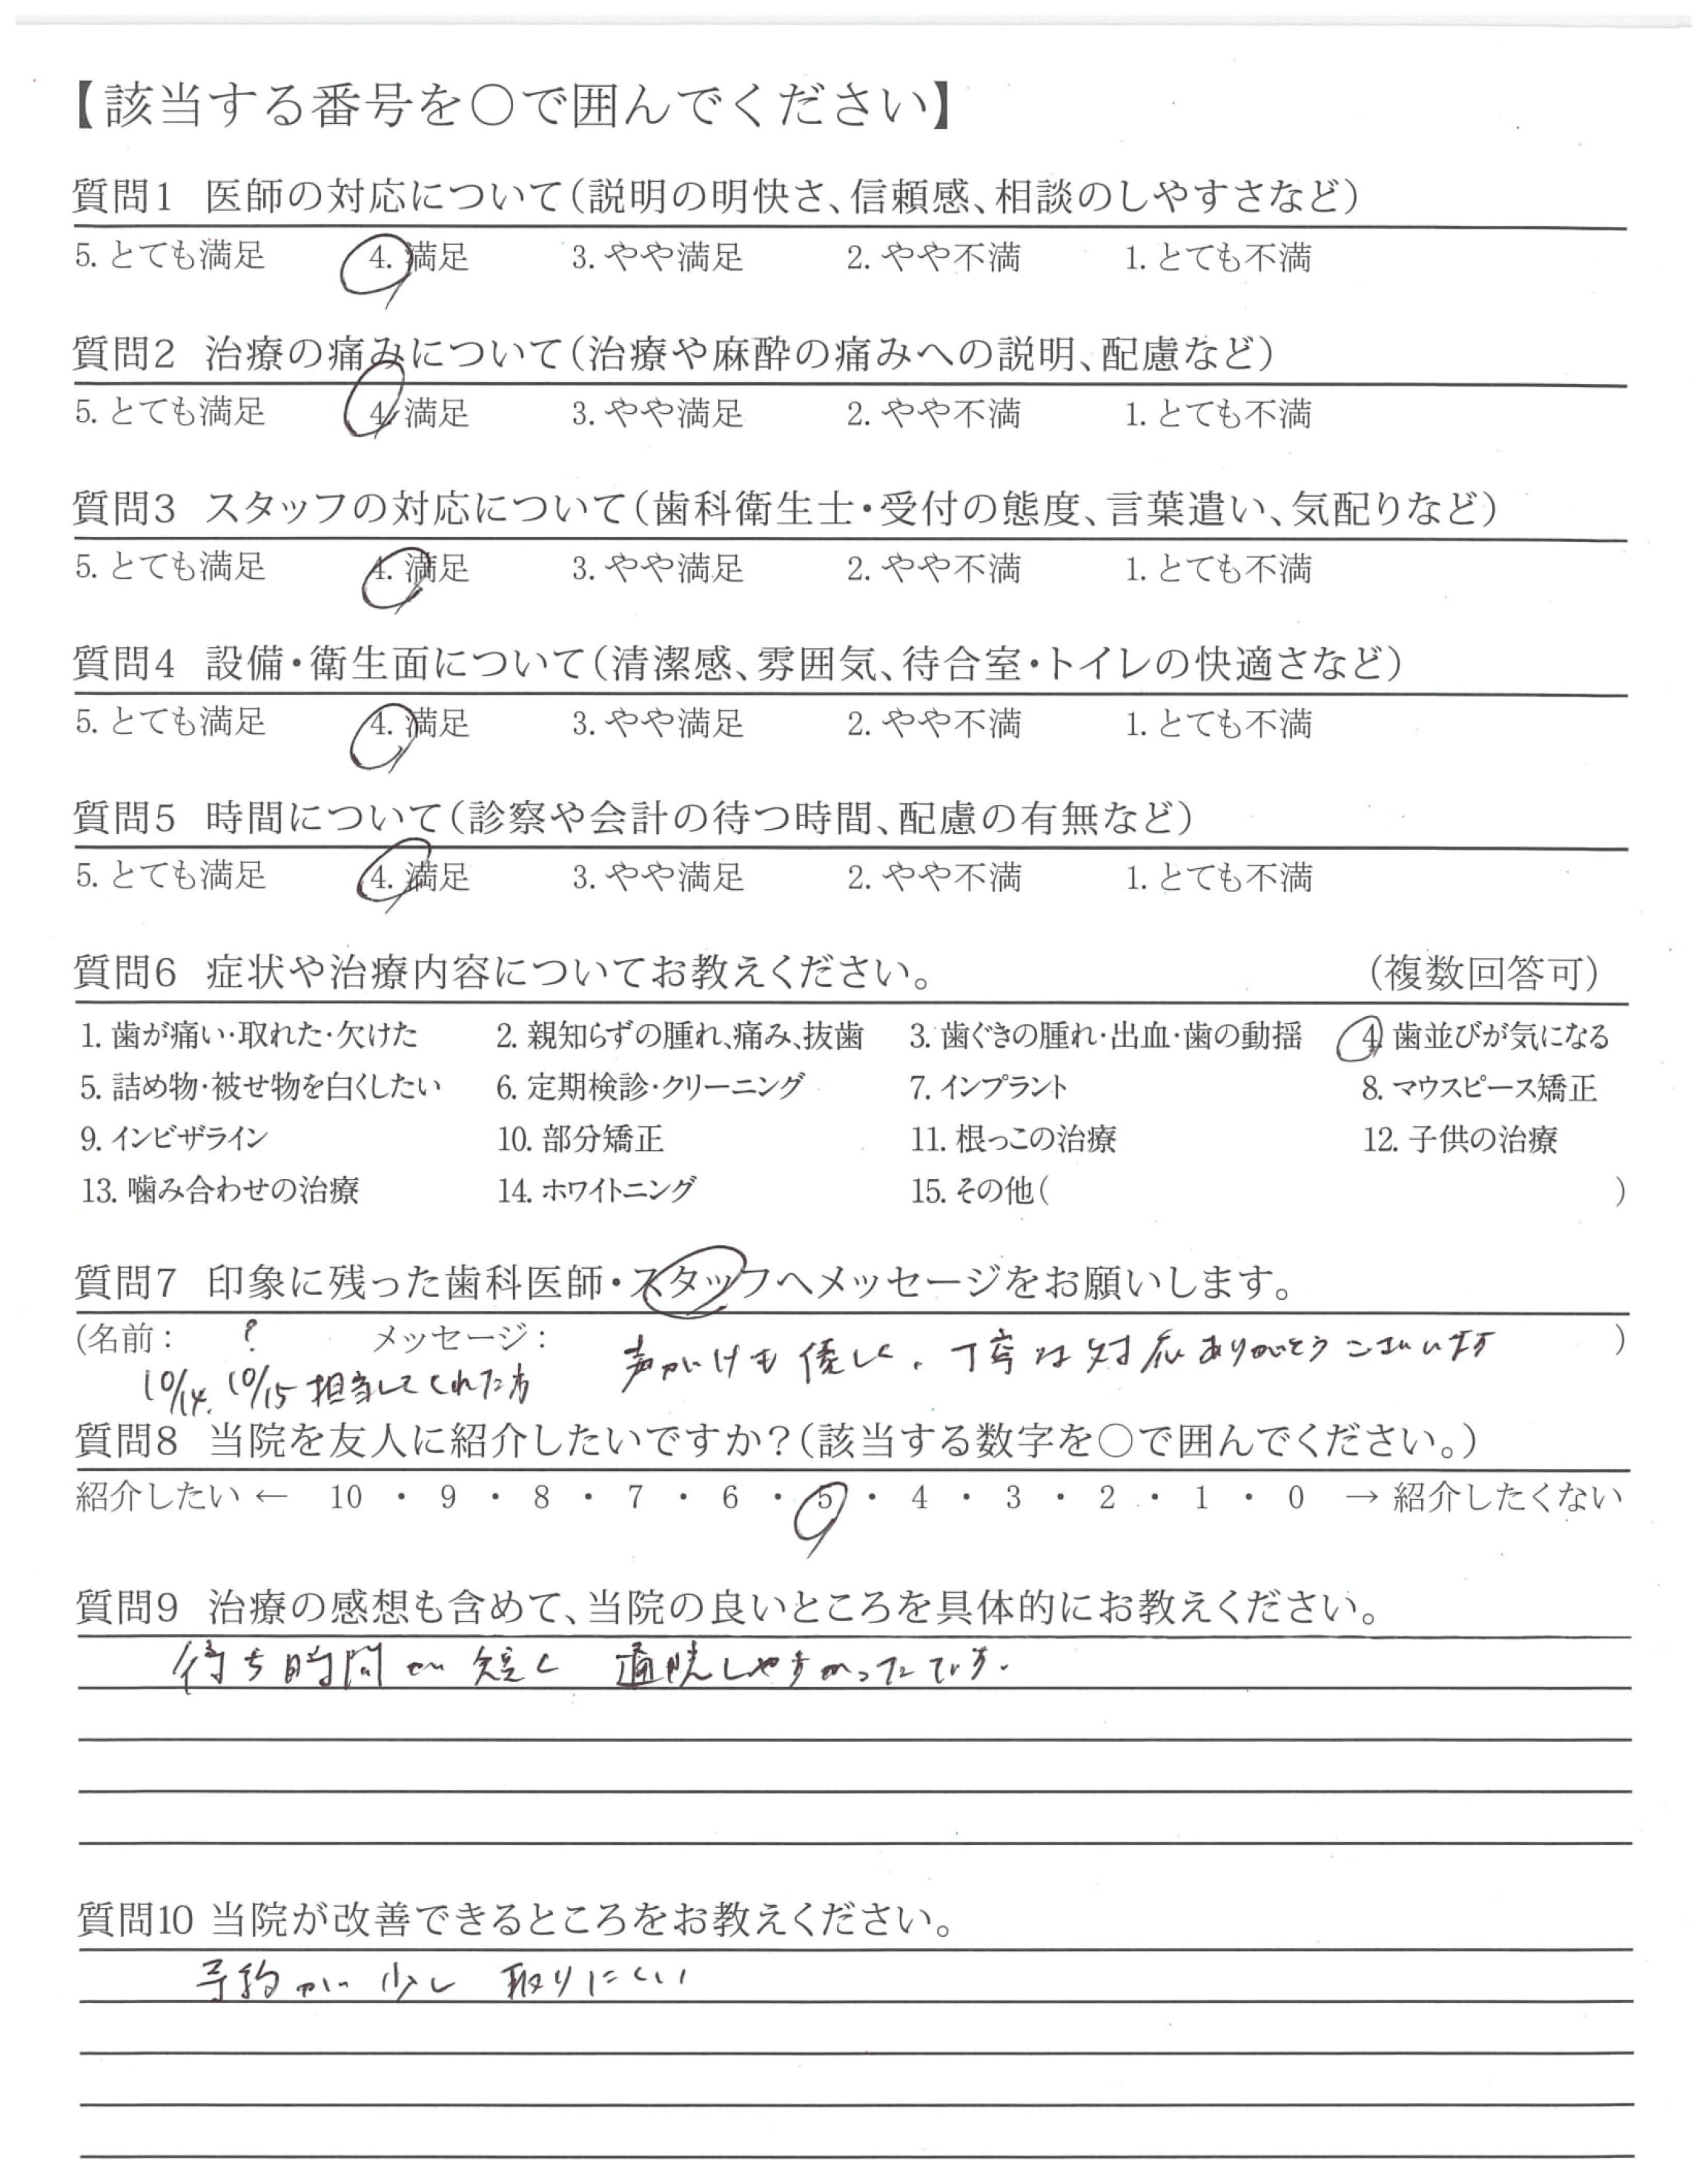 【該当する番号を○で囲んでください】
質問1 医師の対応について(説明の明快さ、信頼感、相談のしやすさなど)
5. とても満足 4. 満足 3. やや満足 2. やや不満 1. とても不満
質問2 治療の痛みについて(治療や麻酔の痛みへの説明、配慮など)
5. とても満足 4. 満足 3. やや満足 2. やや不満 1. とても不満
質問3 スタッフの対応について(歯科衛生士・受付の態度、言葉遣い、気配りなど)
5. とても満足 4. 満足 3. やや満足 2. やや不満 1. とても不満
質問4 設備・衛生面について(清潔感、雰囲気、待合室・トイレの快適さなど)
5. とても満足 4. 満足 3. やや満足 2. やや不満 1. とても不満
質問5 時間について(診察や会計の待つ時間、配慮の有無など)
5. とても満足 4. 満足 3. やや満足 2. やや不満 1. とても不満
質問6 症状や治療内容についてお教えください。 (複数回答可)
1. 歯が痛い・取れた・欠けた 2. 親知らずの腫れ、痛み、抜歯 3. 歯ぐきの腫れ・出血・歯の動揺 4. 歯並びが気になる
5. 詰め物・被せ物を白くしたい 6. 定期検診・クリーニング 7. インプラント 8. マウスピース矯正
9. インビザライン 10. 部分矯正 11. 根っこの治療 12. 子供の治療
13. 噛み合わせの治療 14. ホワイトニング 15. その他( )
質問7 印象に残った歯科医師・スタッフへメッセージをお願いします。
(名前: ? メッセージ: 声かけも優しく、丁寧な対応ありがとうございます )
10/14, 10/15 担当してくれた方
質問8 当院を友人に紹介したいですか?(該当する数字を○で囲んでください。)
紹介したい ← 10 ・ 9 ・ 8 ・ 7 ・ 6 ・ 5 ・ 4 ・ 3 ・ 2 ・ 1 ・ 0 → 紹介したくない
質問9 治療の感想も含めて、当院の良いところを具体的にお教えください。
待ち時間が短く 通院しやすかったです.
質問10 当院が改善できるところをお教えください。
予約が少し 取りにくい